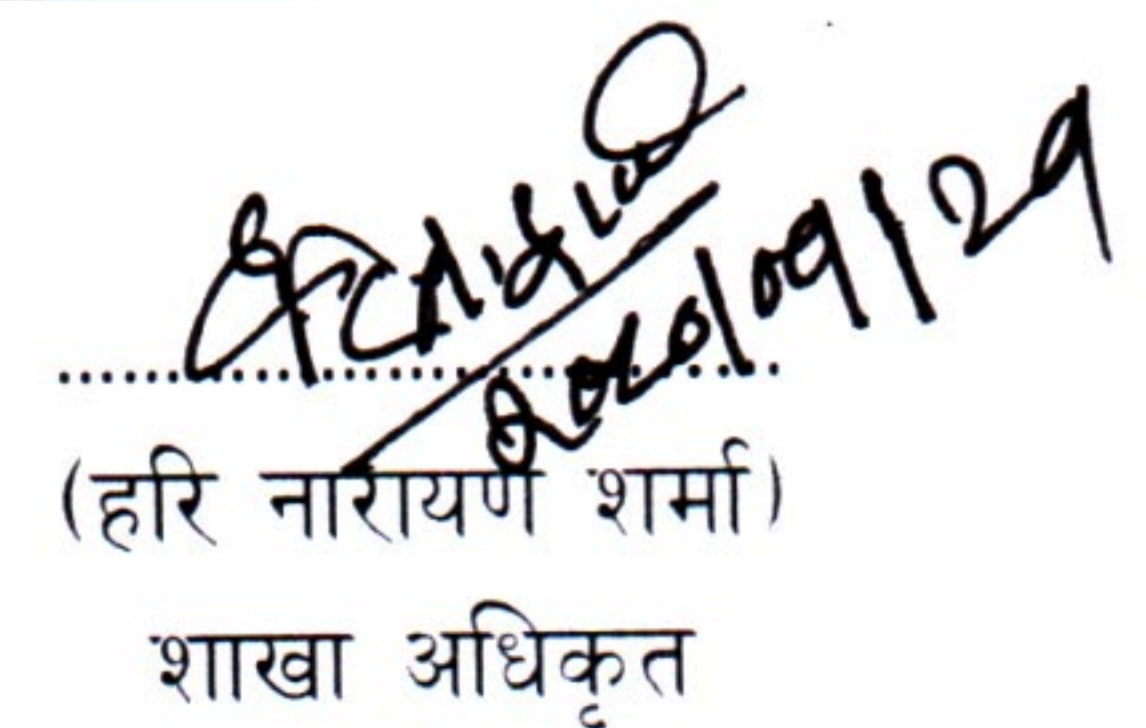 २०८०/०९/२९
(हरि नारायण शर्मा)
शाखा अधिकृत